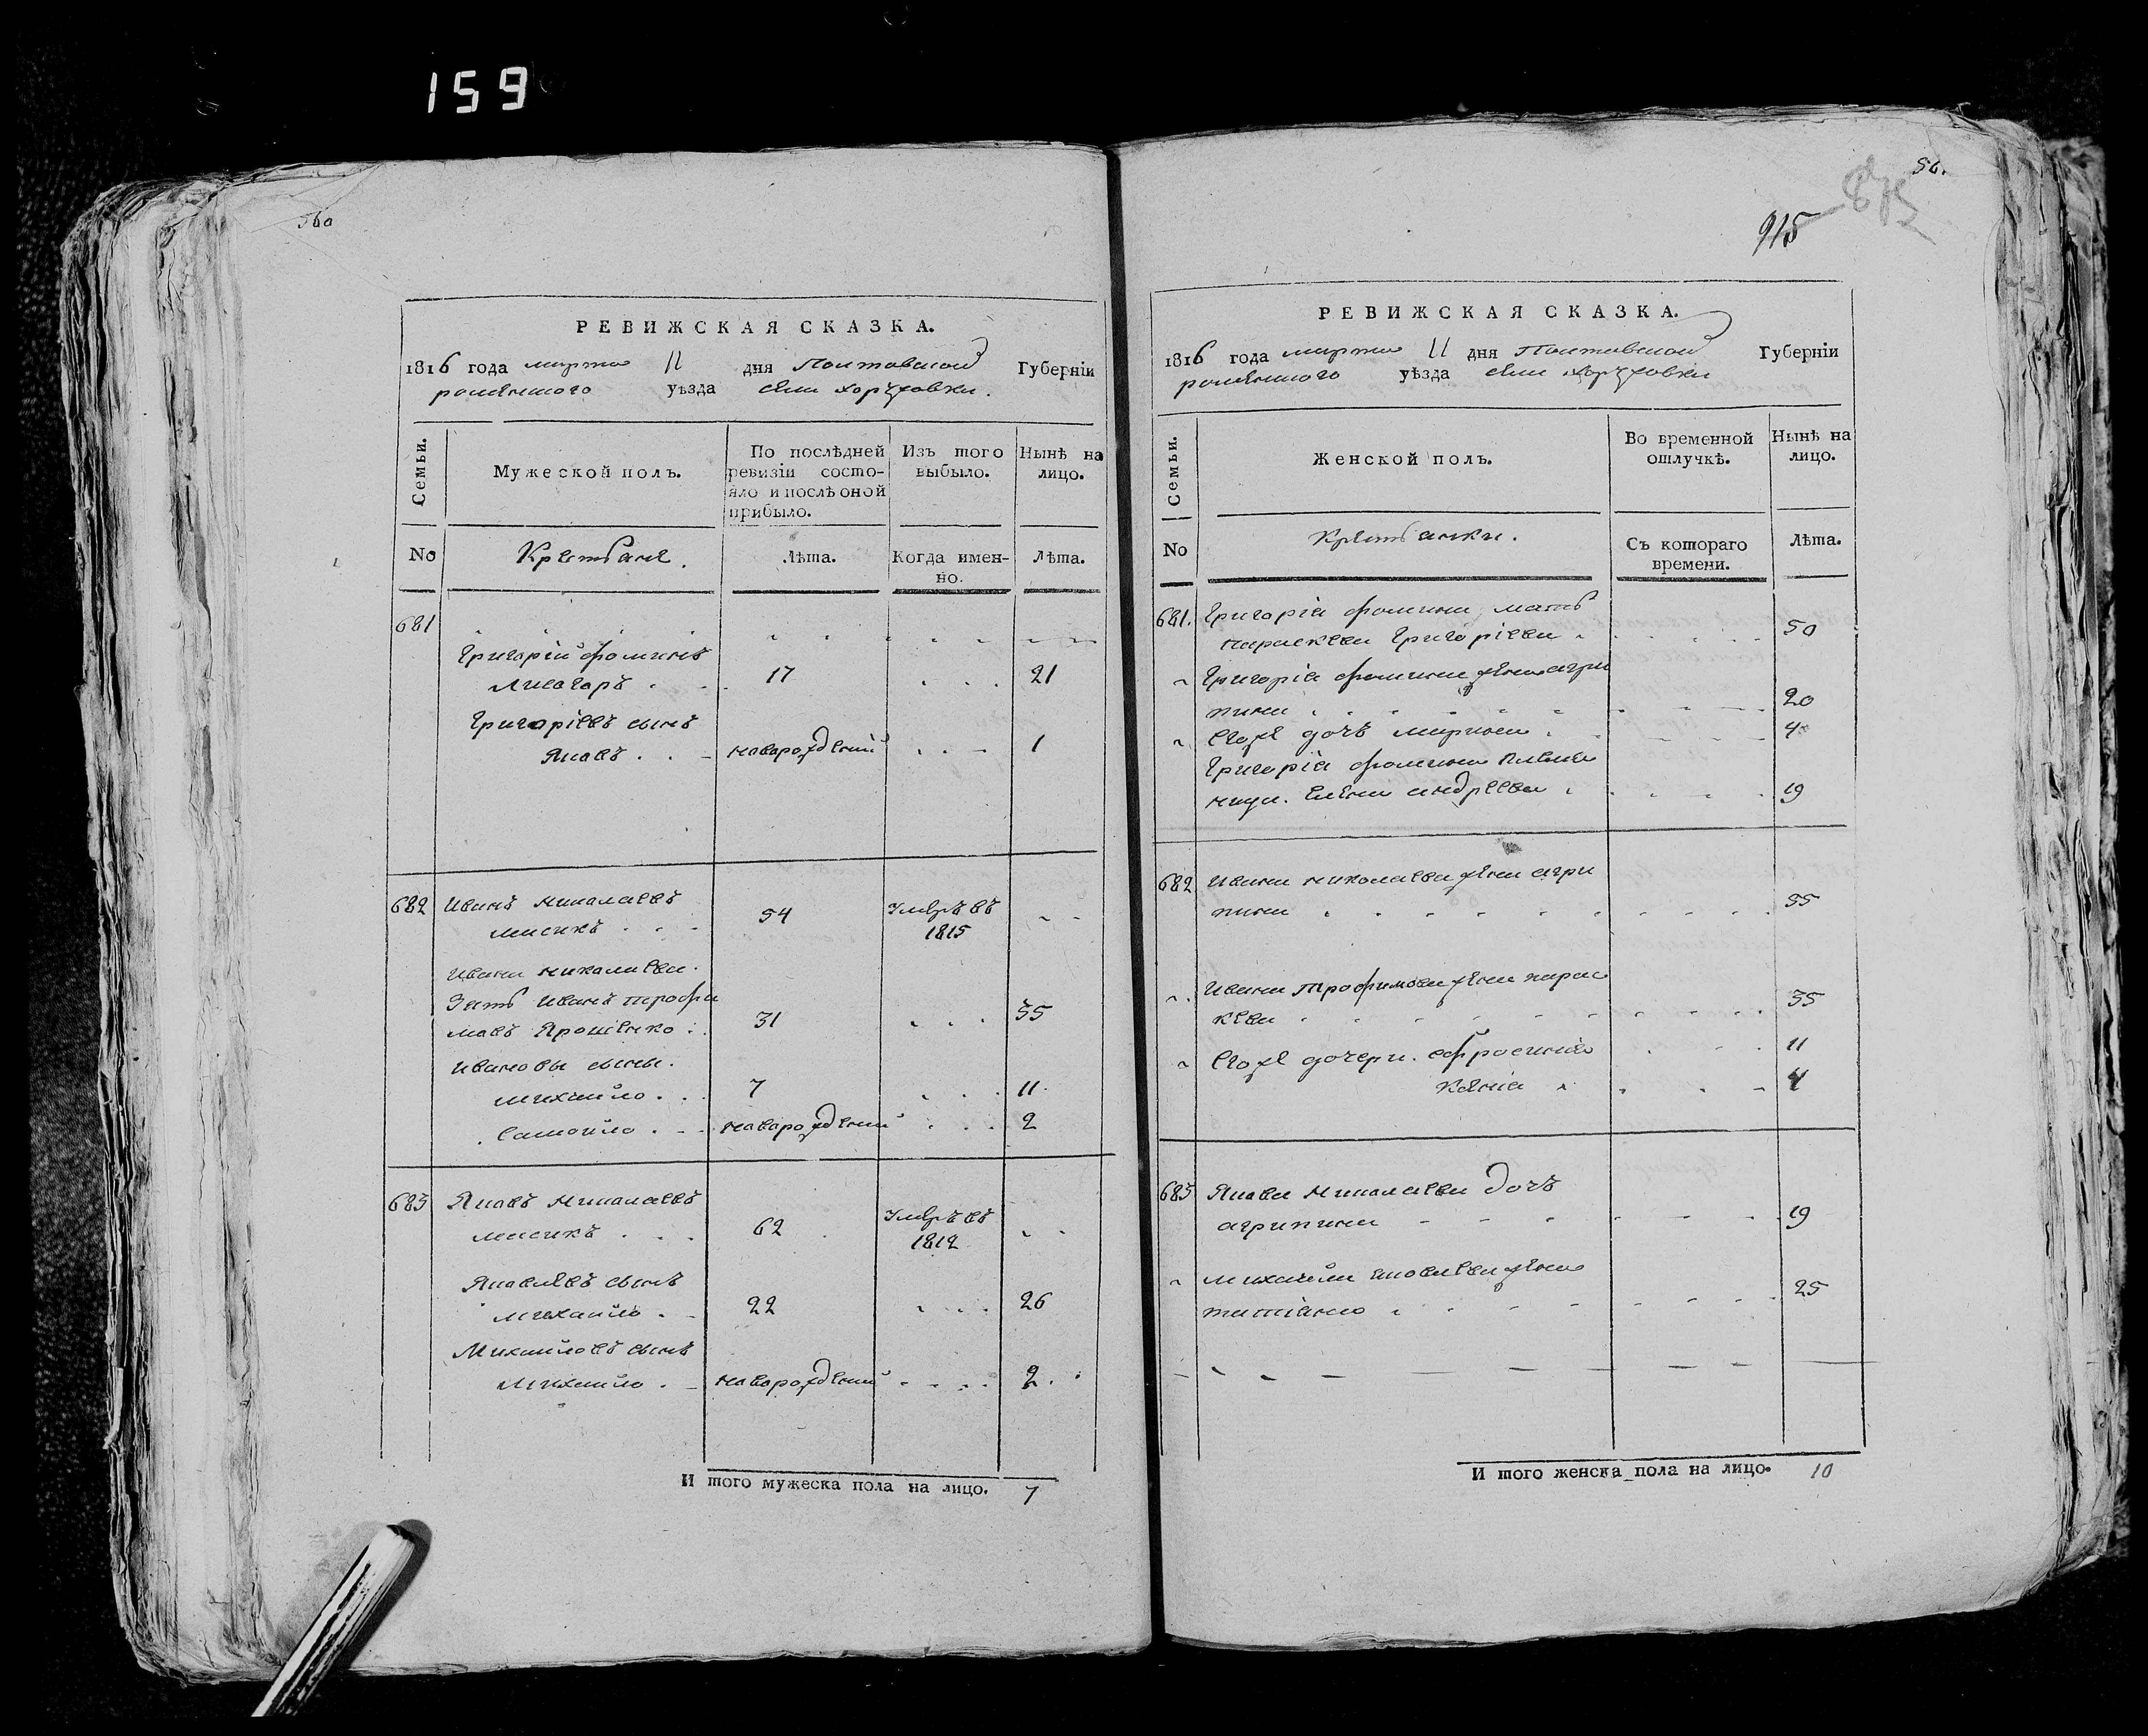 159
560
РЕВИЖСКАЯ СКАЗКА.
1816 года марта 11 дня Полтавской Губерніи
роменского уѣзда села хоружовки.
Семьи.
Мужеской полъ.
По послѣдней ревизіи состо-
яло и послѣ оной
прибыло.
Изъ того
выбыло.
Нынѣ на
лицо.
No
Крестьяне.
Лѣта.
Когда имен-
но.
Лѣта.
681
Григорій фоминъ
17 21
Григоріевъ сынъ
Яковъ новорожденый 1
682 Иванъ николаевъ
мисикъ 54 Умѣръ въ 1815
ивана николаева
Зять иванъ трофи
мовъ Ярошенко 31 35
ивановы сыны.
михайло 7 11
Самойло новорожденый 2
683 Яковъ николаевъ
мисикъ 62 Умѣръ въ 1812
Яковлевъ сынъ
михайло 22 26
Михайловъ сынъ
михайло новорожденый 2
И того мужеска пола на лицо. 7
56.
915
РЕВИЖСКАЯ СКАЗКА.
1816 года марта 11 дня Полтавской Губерніи
роменского уѣзда села хоружовки
Семьи.
Женской полъ.
Во временной
отлучкѣ.
Нынѣ на
лицо.
No
Крестьянки.
Съ котораго
времени.
Лѣта.
681. Григорія фомина мать
параскева Григоріева 50
Григорія фомина жена агри
пина 20
Егоже дочъ марина 4
Григорія фомина племе
ница. Елена андреева 19
682 ивана николаева жена агри
пина 55
ивана трофимова жена парас
кева 35
Егоже дочери. ефросинія 11
ксенія 4
683 Якова николаева дочъ
агрипина 19
михайла яковлева жена
татіана 25
И того женска пола на лицо. 10